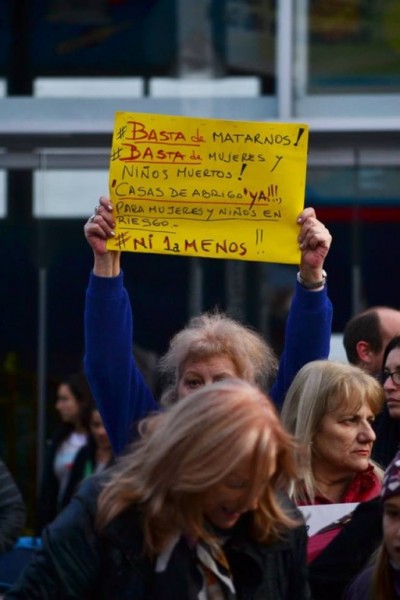 # BASTA de MATARNOS!
# BASTA de MUJERES Y
NIÑOS MUERTOS!
'CASAS DE ABRIGO' YA!!!,
PARA MUJERES Y NIÑOS EN
RIESGO.-
# NI 1a MENOS !!